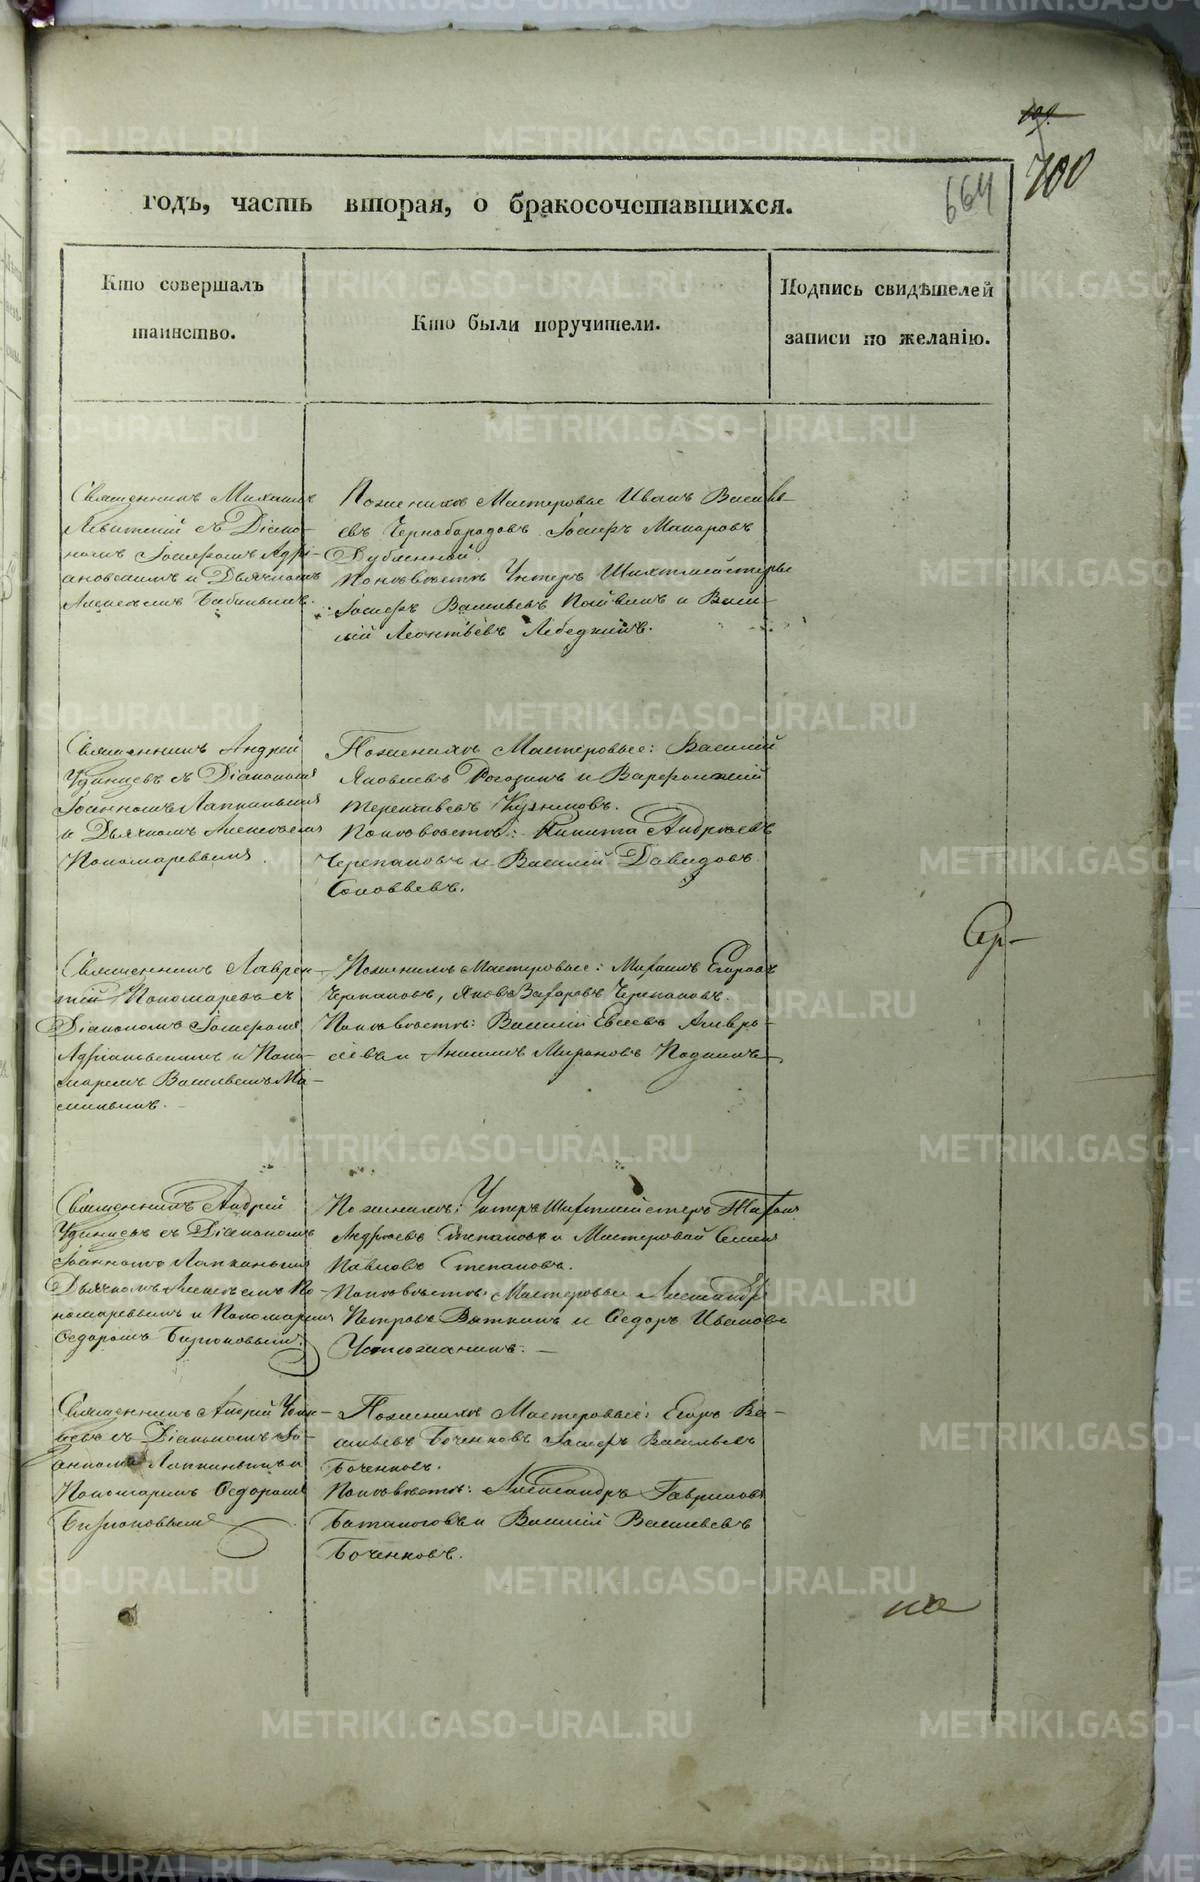 700
664
годъ, часть вторая, о бракосочетавшихся.
Кто совершалъ
таинство.
Кто были поручители.
Подпись свидѣтелей
записи по желанію.
Священникъ Михаилъ
Левитскій съ Діако-
номъ Іосифомъ Адрі-
ановскимъ и Дьячкомъ
Алексѣемъ Бабинымъ.
По женихѣ Мастеровые Иванъ Василь-
евъ Чернобородовъ Іосифъ Макаровъ
Дубленной.
По невѣстѣ Унтеръ Шихтмейстеры
Іосифъ Васильевъ и Васи-
лій Леонтьевъ Лебедкинъ.
Священникъ Андрей
Удинцевъ съ Діакономъ
Іоанномъ Лапкинымъ
и Дьячкомъ Алексѣемъ
Пономаревымъ.
По женихѣ Мастеровые: Василій
Яковлевъ Рогозинъ и Варфоломей
Терентьевъ
По невѣстѣ: Никита Андреевъ
Черепановъ и Василій Давидовъ
Соловьевъ.
Священникъ Лаврен-
тій Пономаревъ съ
Діакономъ Іосифомъ
Адріановскимъ и Поно-
маремъ Васильемъ Ма-
минымъ.
По женихѣ Мастеровые: Михаилъ Егоровъ
Черпановъ, Яковъ Захаровъ Черепановъ.
По невѣстѣ: Василій Евсеевъ
и Мироновъ
Священникъ Андрей
Удинцевъ съ Діакономъ
Іоанномъ Лапкинымъ
Дьячкомъ Алексѣемъ По-
номаревымъ и Пономаремъ
Ѳедоромъ Бирюковымъ.
По женихѣ: Унтеръ Шихтмейстеръ
Андреевъ Степановъ и Мастеровой Семенъ
Павловъ Степановъ.
По невѣстѣ: Мастеровые Александръ
Петровъ Вяткинъ и Ѳедоръ Ивановъ
Устюжанинъ.
Священникъ Андрей Удин-
цевъ съ Діакономъ Іо-
анномъ Лапкинымъ и
Пономаремъ Ѳедоромъ
Бирюковымъ
По женихѣ Мастеровые: Егоръ Ва-
сильевъ Боченковъ Іосифъ Васильевъ
Боченковъ.
По невѣстѣ: Александръ Гавриловъ
Баталоговъ и Василій Васильевъ
Боченковъ.
METRIKI.GASO-URAL.RU